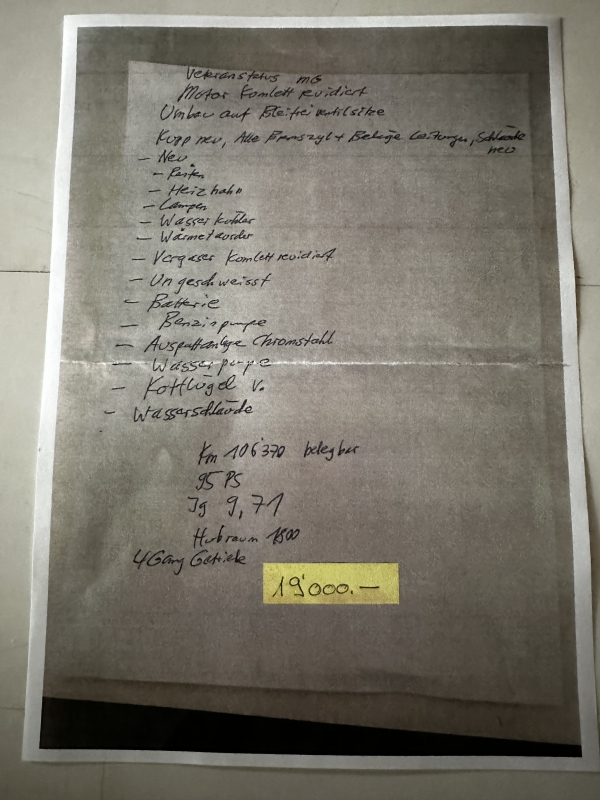 Veteranstatus MG
Motor Komlett revidiert
Umbau auf Bleifrei ventilsitze
Kupp neu, Alle Bremszyl + Beläge Leitungen, Schläuche
neu
- Neu
- Reifen
- Heizhahn
- Lampen
- Wasser kühler
- Wärmetauscher
- Vergaser Komlett revidiert
- Ungeschweisst
- Batterie
- Benzinpumpe
- Auspuffanlage Chromstahl
- Wasserpumpe
- Kotflügel v.
- Wasserschläuche
Km 106'370 belegbar
95 PS
Jg 9,71
Hubraum 1800
4 Gang Getriebe
19'000.-